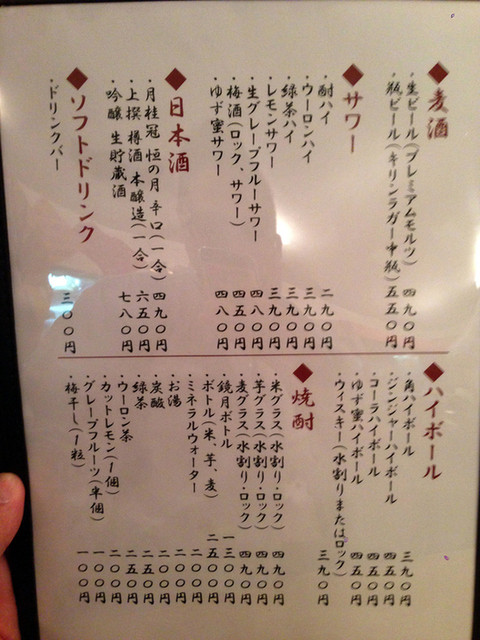 ◆麦酒
・生ビール(プレミアムモルツ) 四九〇円
・瓶ビール(キリンラガー中瓶) 五五〇円
◆サワー
・酎ハイ 二九〇円
・ウーロンハイ 三九〇円
・緑茶ハイ 三九〇円
・レモンサワー 三九〇円
・生グレープフルーサワー 四八〇円
・梅酒(ロック、サワー) 四五〇円
・ゆず蜜サワー 四八〇円
◆日本酒
・月桂冠 恒の月 辛口(一合) 四九〇円
・上撰 樽酒 本醸造(一合) 六五〇円
・吟醸 生貯蔵酒 七八〇円
◆ソフトドリンク
・ドリンクバー 三〇〇円
◆ハイボール
・角ハイボール 三九〇円
・ジンジャーハイボール 四五〇円
・コーラハイボール 四五〇円
・ゆず蜜ハイボール 四五〇円
・ウィスキー(水割りまたはロック) 三九〇円
◆焼酎
・米グラス(水割り・ロック) 四九〇円
・芋グラス(水割り・ロック) 四九〇円
・麦グラス(水割り・ロック) 四九〇円
・鏡月ボトル 一三〇〇円
・ボトル(米、芋、麦) 二五〇〇円
・ミネラルウォーター 二〇〇円
・お湯 二〇〇円
・炭酸 二〇〇円
・緑茶 二五〇円
・ウーロン茶 二五〇円
・カットレモン(1個) 二〇〇円
・グレープフルーツ(半個) 一〇〇円
・梅干し(1粒) 一〇〇円